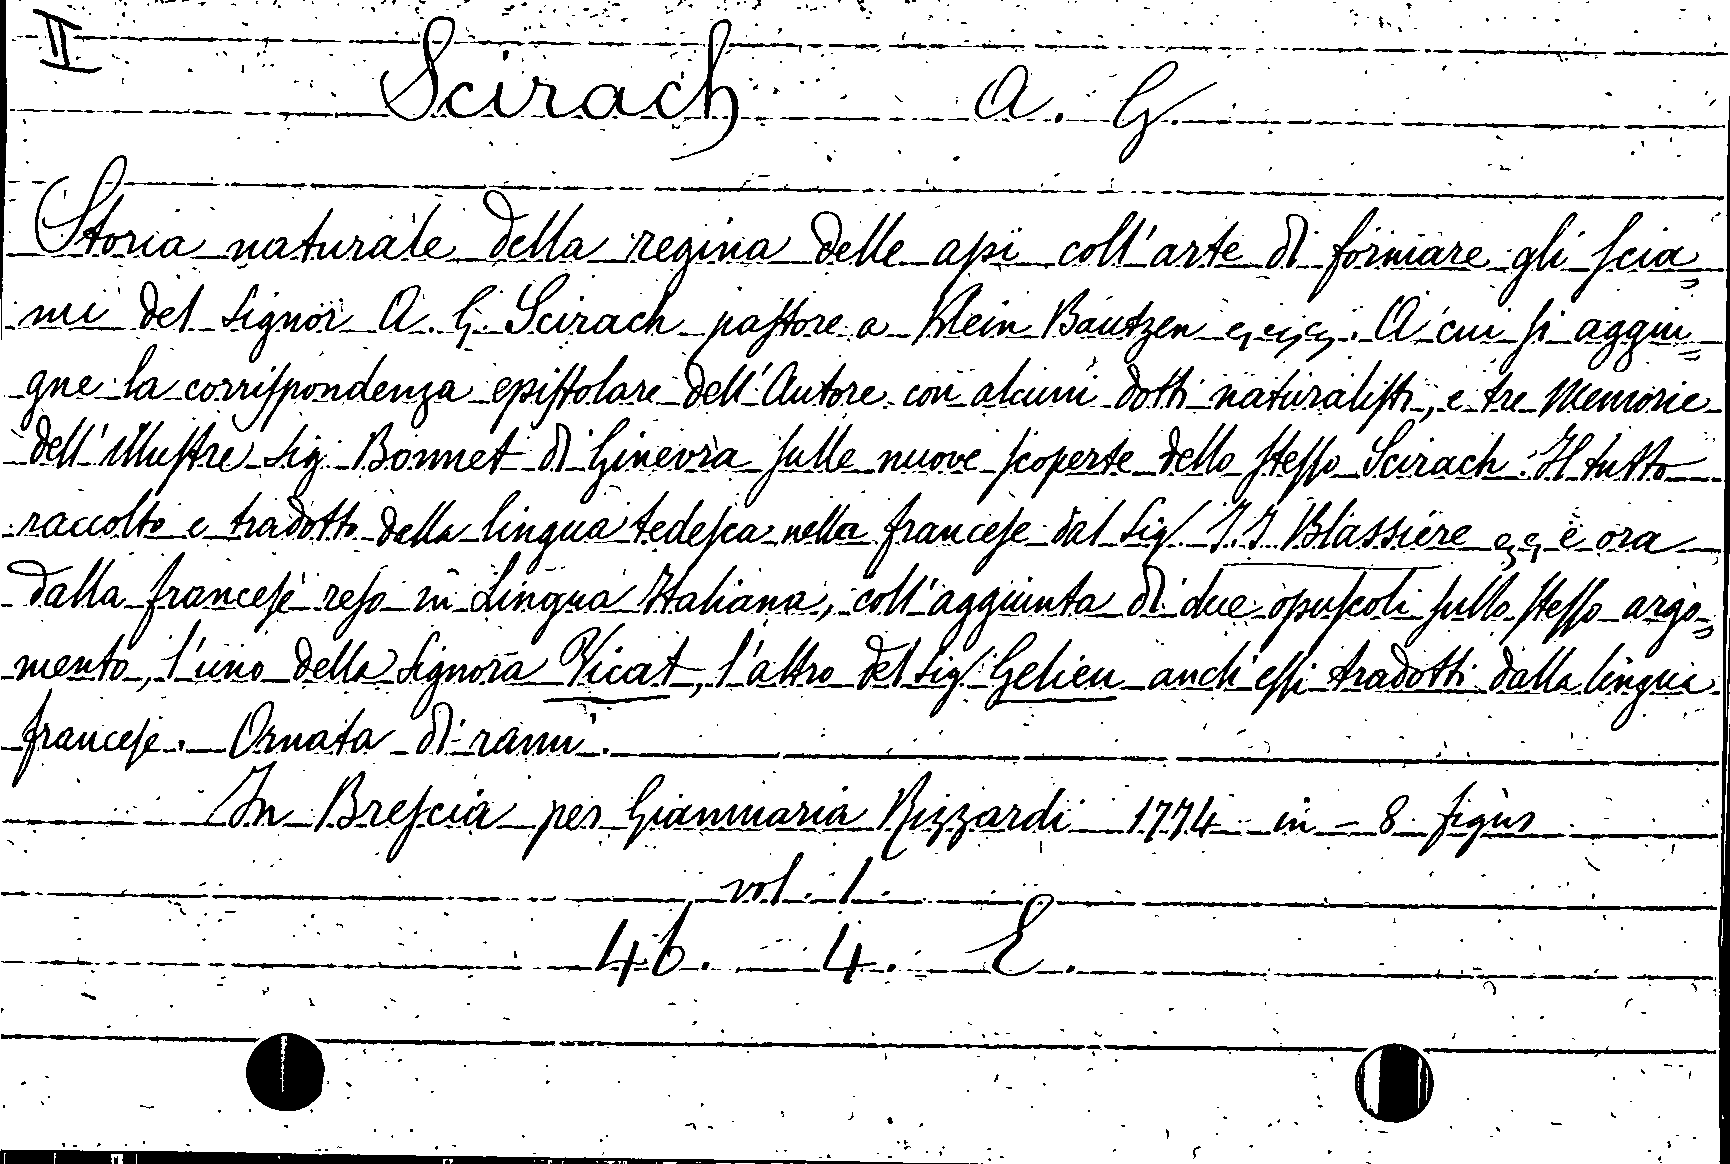 II
Scirach A. G.
Storia naturale della regina delle api coll'arte di formare gli scia=
mi del Signor A. G. Scirach pastore a Klein Bautzen &,&,&. A cui si aggiu=
gne la corrispondenza epistolare dell'Autore con alcuni dotti naturalisti, e tre Memorie
dell'illustre Sig. Bonnet di Ginevra sulle nuove scoperte dello stesso Scirach. Il tutto
raccolto e tradotto dalla lingua tedesca nella francese dal Sig. J. J. Blassiere &,&, e ora
dalla francese reso in Lingua Italiana, coll'aggiunta di due opuscoli sullo stesso argo=
mento, l'uno della Signora Vicat, l'altro del Sig. Gelieu anch'essi tradotti dalla lingua
francese. Ornata di rami.
In Brescia per Giammaria Rizzardi 1774 in - 8 figur
vol. 1.
46. 4. E.